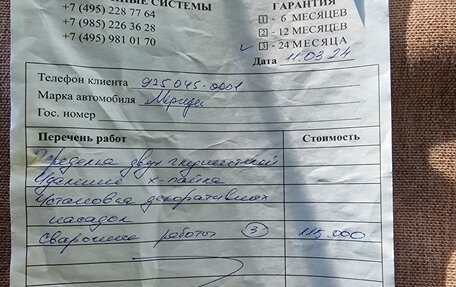 НЫЕ СИСТЕМЫ
+7 (495) 228 77 64
+7 (985) 226 36 28
+7 (495) 981 01 70
ГАРАНТИЯ
1 - 6 МЕСЯЦЕВ
2 - 12 МЕСЯЦЕВ
✓ 3 - 24 МЕСЯЦА
Дата 11.03.24
Телефон клиента 925 045-0001
Марка автомобиля
Гос. номер
Перечень работ Стоимость
Переделка двух глушителей
Удаление х-пайпа
Установка декоративных
насадок
Сварочные работы 3 115.000